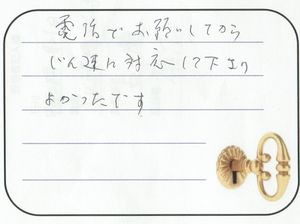 電話でお願いしてから
じん速に対応して下さり
よかったです